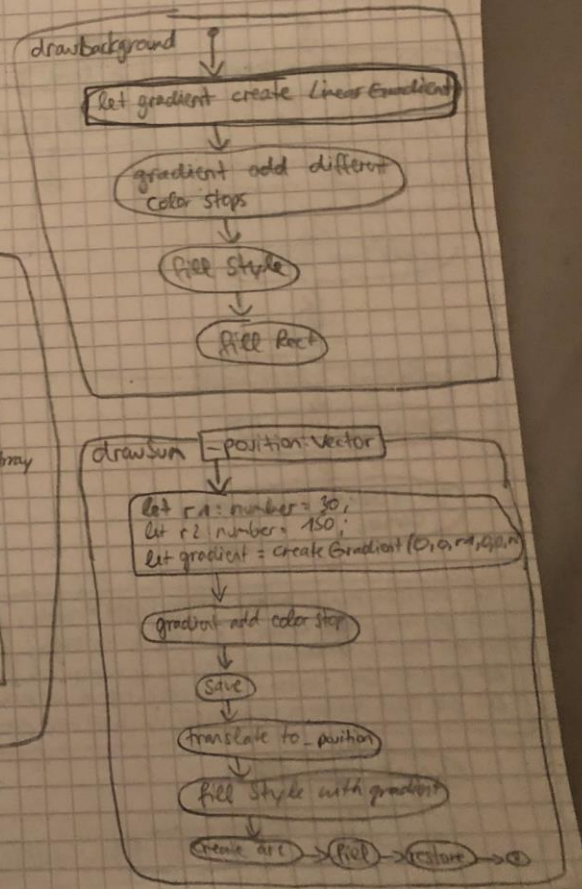 drawbackground
let gradient create Linear Gradient
gradient add different
color stops
fill Style
fill Rect
drawSun _position: Vector
let r1: number = 30;
let r2: number = 150;
let gradient = createGradient (0, 0, r1, 0, 0, r
gradient add color stop
save
translate to _position
fill Style with gradient
create arc fill restore